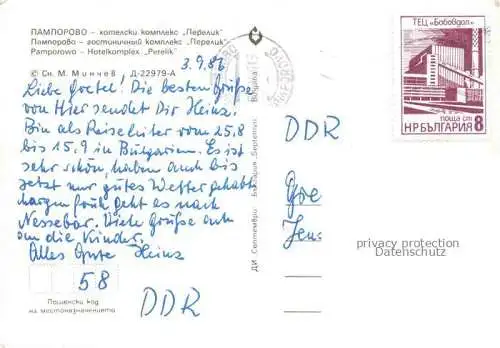 ПАМПОРОВО – хотелски комплекс „Перелик"
Пампорово – гостиничный комплекс „Перелик"
Pamporovo – Hotelkomplex „Perelik"
© Сн. М. Минчев Д-22979-А
3.9.86
Liebe Gretel! Die besten Grüße
von Hier sendet Dir Heinz.
Bin als Reiseleiter vom 25.8
bis 15.9 in Bulgarien. Es ist
sehr schön, haben auch bis
jetzt nur gutes Wetter gehabt
morgen früh geht es nach
Nessebar. Viele Grüße auch
an die Kinder.
Alles Gute Heinz
58
DDR
Пощенски код
на местоназначението
ДИ „Септември" България
ТЕЦ „Бобовдол"
поща ст
НРБЪЛГАРИЯ 8
DDR
privacy protection
Datenschutz